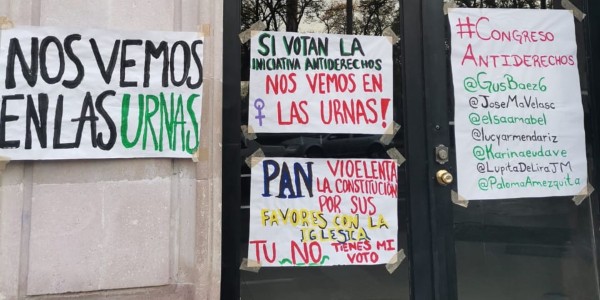 NOS VEMOS
EN LAS URNAS
SI VOTAN LA
INICIATIVA ANTIDERECHOS
NOS VEMOS EN
LAS URNAS!
PAN VIOLENTA
LA CONSTITUCIÓN
POR SUS
FAVORES CON LA
IGLESIA
TU NO TIENES MI
VOTO
#CONGRESO
ANTIDERECHOS
@GusBaez6
@JoseMaVelasc
@elsaamabel
@lucyarmendariz
@Karinaeudave
@LupitaDeLiraJM
@PalomaAmezquita